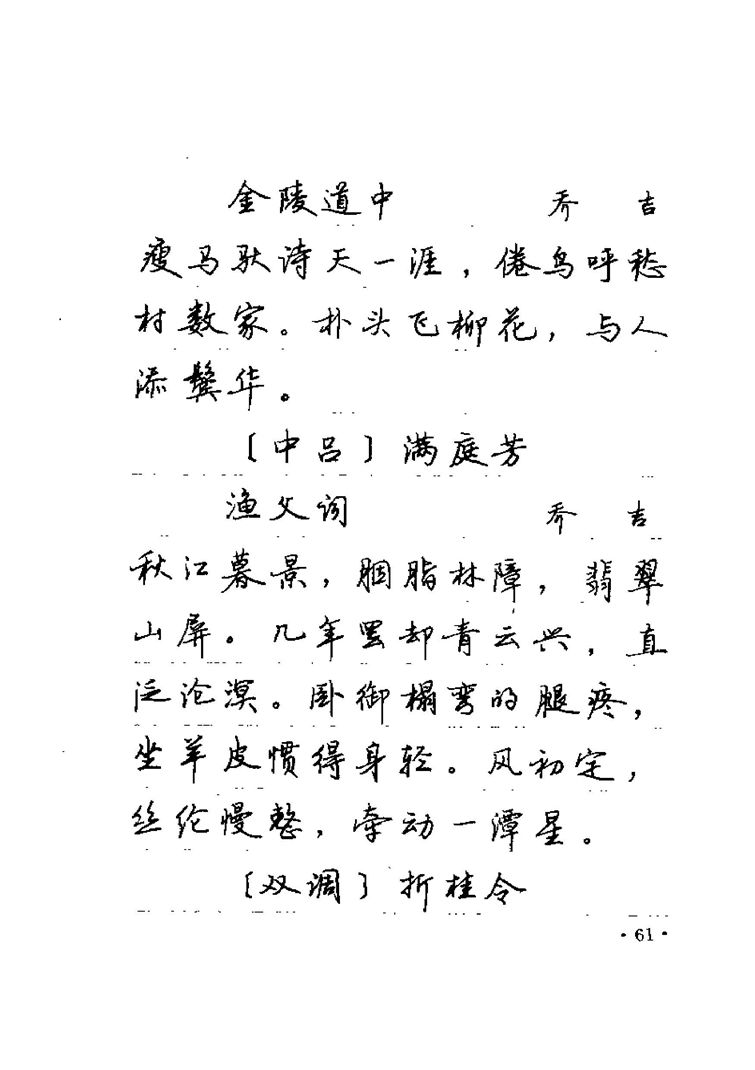 金陵道中 乔 吉
瘦马驮诗天一涯，倦鸟呼愁
村数家。朴头飞柳花，与人
添鬓华。
〔中吕〕满庭芳
渔父词 乔 吉
秋江暮景，胭脂林障，翡翠
山屏。几年罢却青云兴，直
泛沧溟。卧御榻弯的腿疼，
坐羊皮惯得身轻。风初定，
丝伦慢整，牵动一潭星。
〔双调〕折桂令
·61·